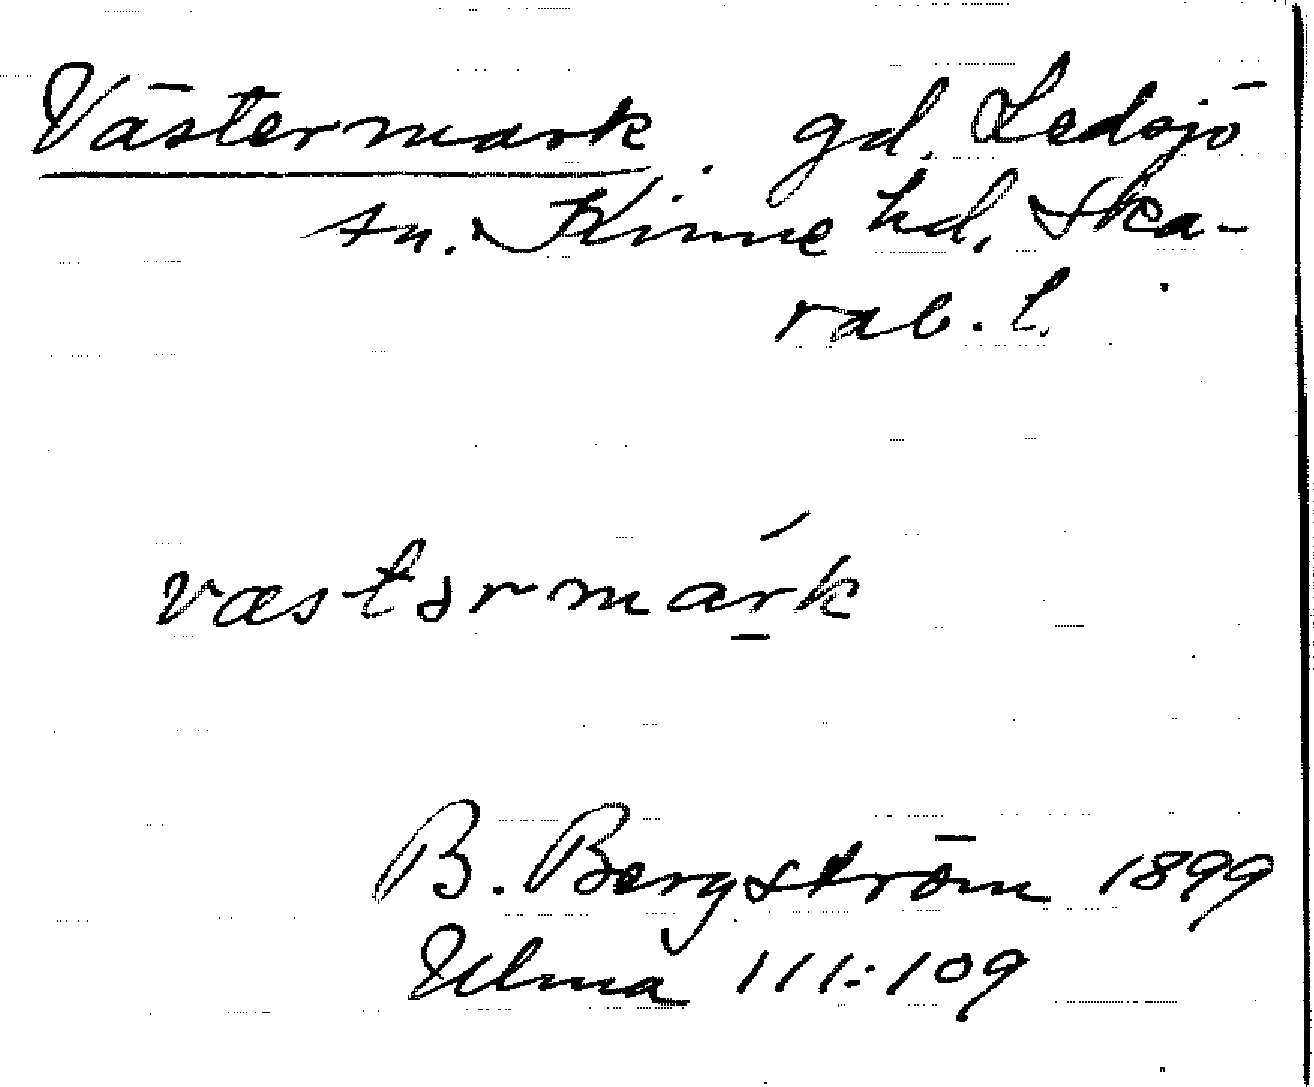 Västermark. gd. Ledsjö
sn. Kinne hd. Ska-
rab. l.
væstərmárk
B. Bergström 1899
Ulma 111:109